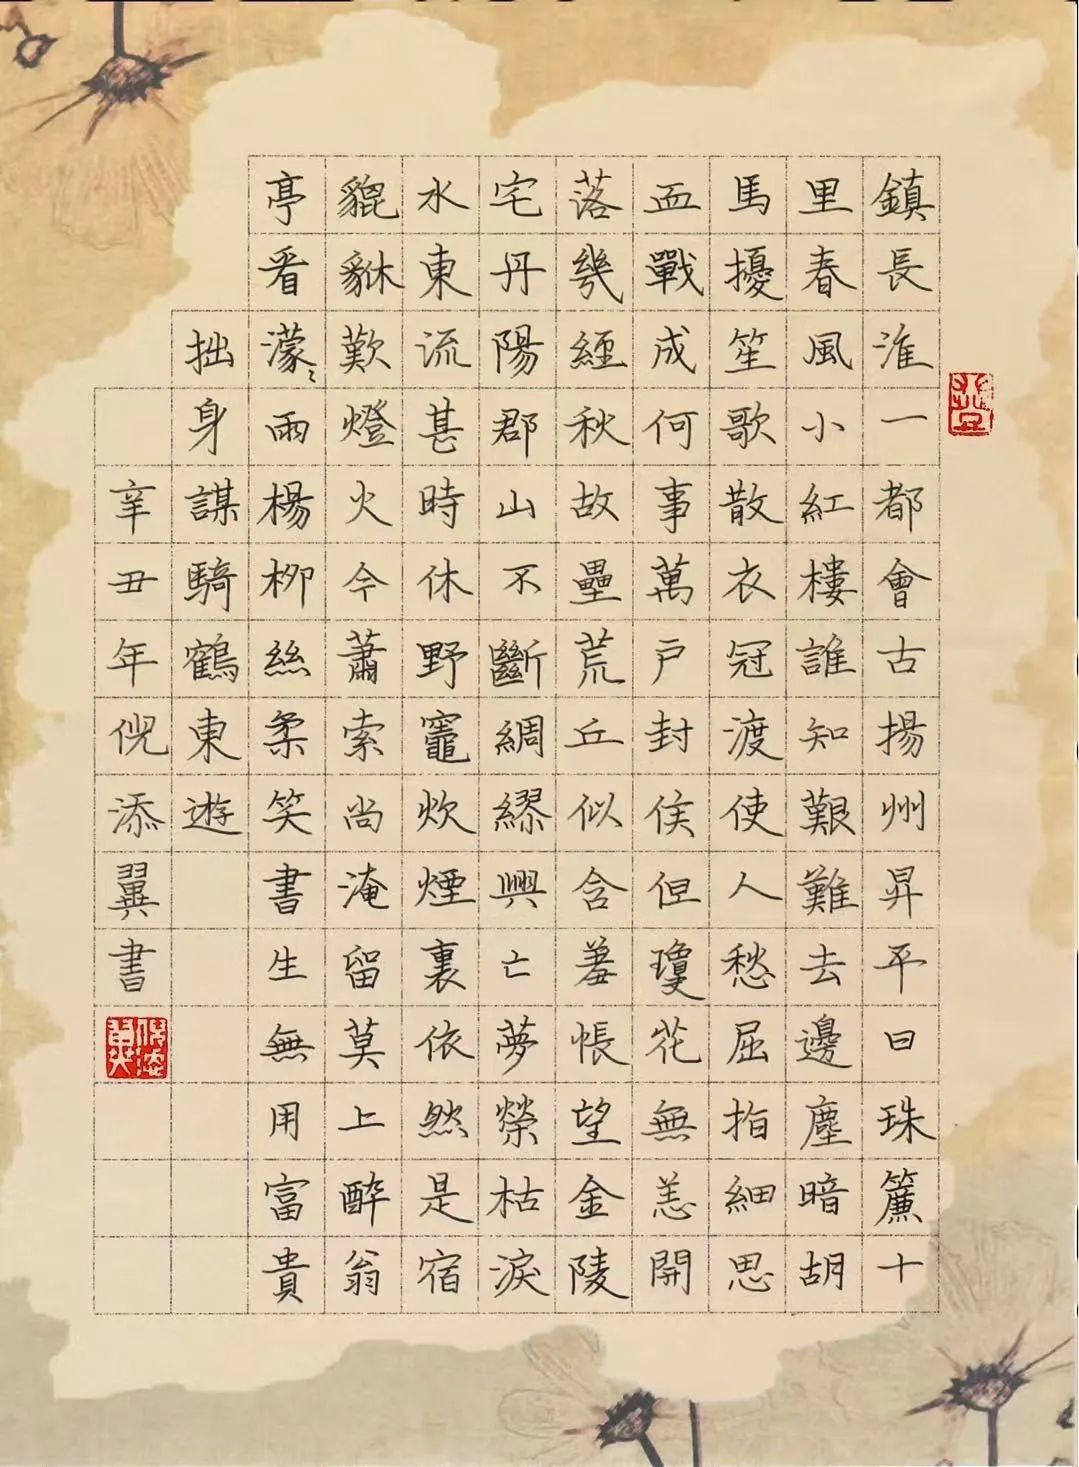 鎮長淮一都會古揚州昇平日珠簾十
里春風小紅樓誰知艱難去邊塵暗胡
馬擾笙歌散衣冠渡使人愁屈指細思
血戰成何事萬戶封侯但瓊花無恙開
落幾經秋故壘荒丘似含羞悵望金陵
宅丹陽郡山不斷綢繆興亡夢榮枯淚
水東流甚時休野竈炊煙裏依然是宿
貔貅歎燈火今蕭索尚淹留莫上醉翁
亭看濛〻雨楊柳絲柔笑書生無用富貴
拙身謀騎鶴東遊
辛丑年倪添翼書
倪添翼